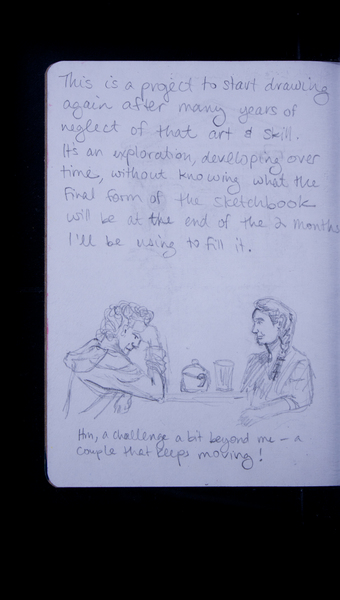 This is a project to start drawing
again after many years of
neglect of that art & skill.
Its an exploration, developing over
time, without knowing what the
final form of the sketchbook
will be at the end of the 2 months
I'll be using to fill it.
Hm, a challenge a bit beyond me – a
couple that keeps moving!